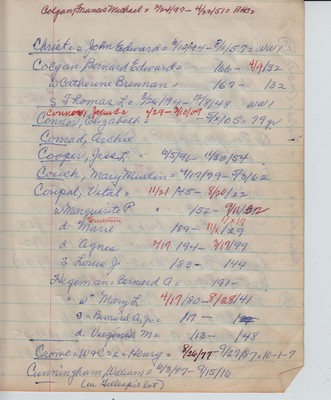 Colgan, Francis Michael = 2/24/97 - 4/22/51 =
Christ = John Edward = 5/10/94 - 5/1/57 = WW I
Colgan, Bernard Edward = 166 - 4/9/32
w Catherine Brennan = 167 - 132
s Thomas L = 3/26/94 - 12/8/48 WW I
Connor, John = 4/29 - 3/10/04
Connor, Elizabeth = 5/5/05 = 79 yr
Conrad, Archie
Cooper, Jess L " 6/5/96 - 11/30/54
Couch, Mary Meulin = 4/17/99 - 9/3/62
Coupal, Vital = 11/21/45 - 8/20/22
w Marguerite P. " 152 - 9/11/32
d " Marie Ernestine 189 - 11/1/29
d " Agnes 2/17 194 - 3/17/99
s Louis J. 183 - 144
Hegeman = Bernard A = 191 -
" w " Mary L 4/17/80 - 8/28/41
s = Bernard A. Jr = 117 - 1
d. Virginia M = 113 - 148
Crome = W & C = = Henry = 8/26/77 - 9/27/57 = 10-1-7
Cunningham, William = 6/3/07 - 9/15/16
(in Gillespie lot)